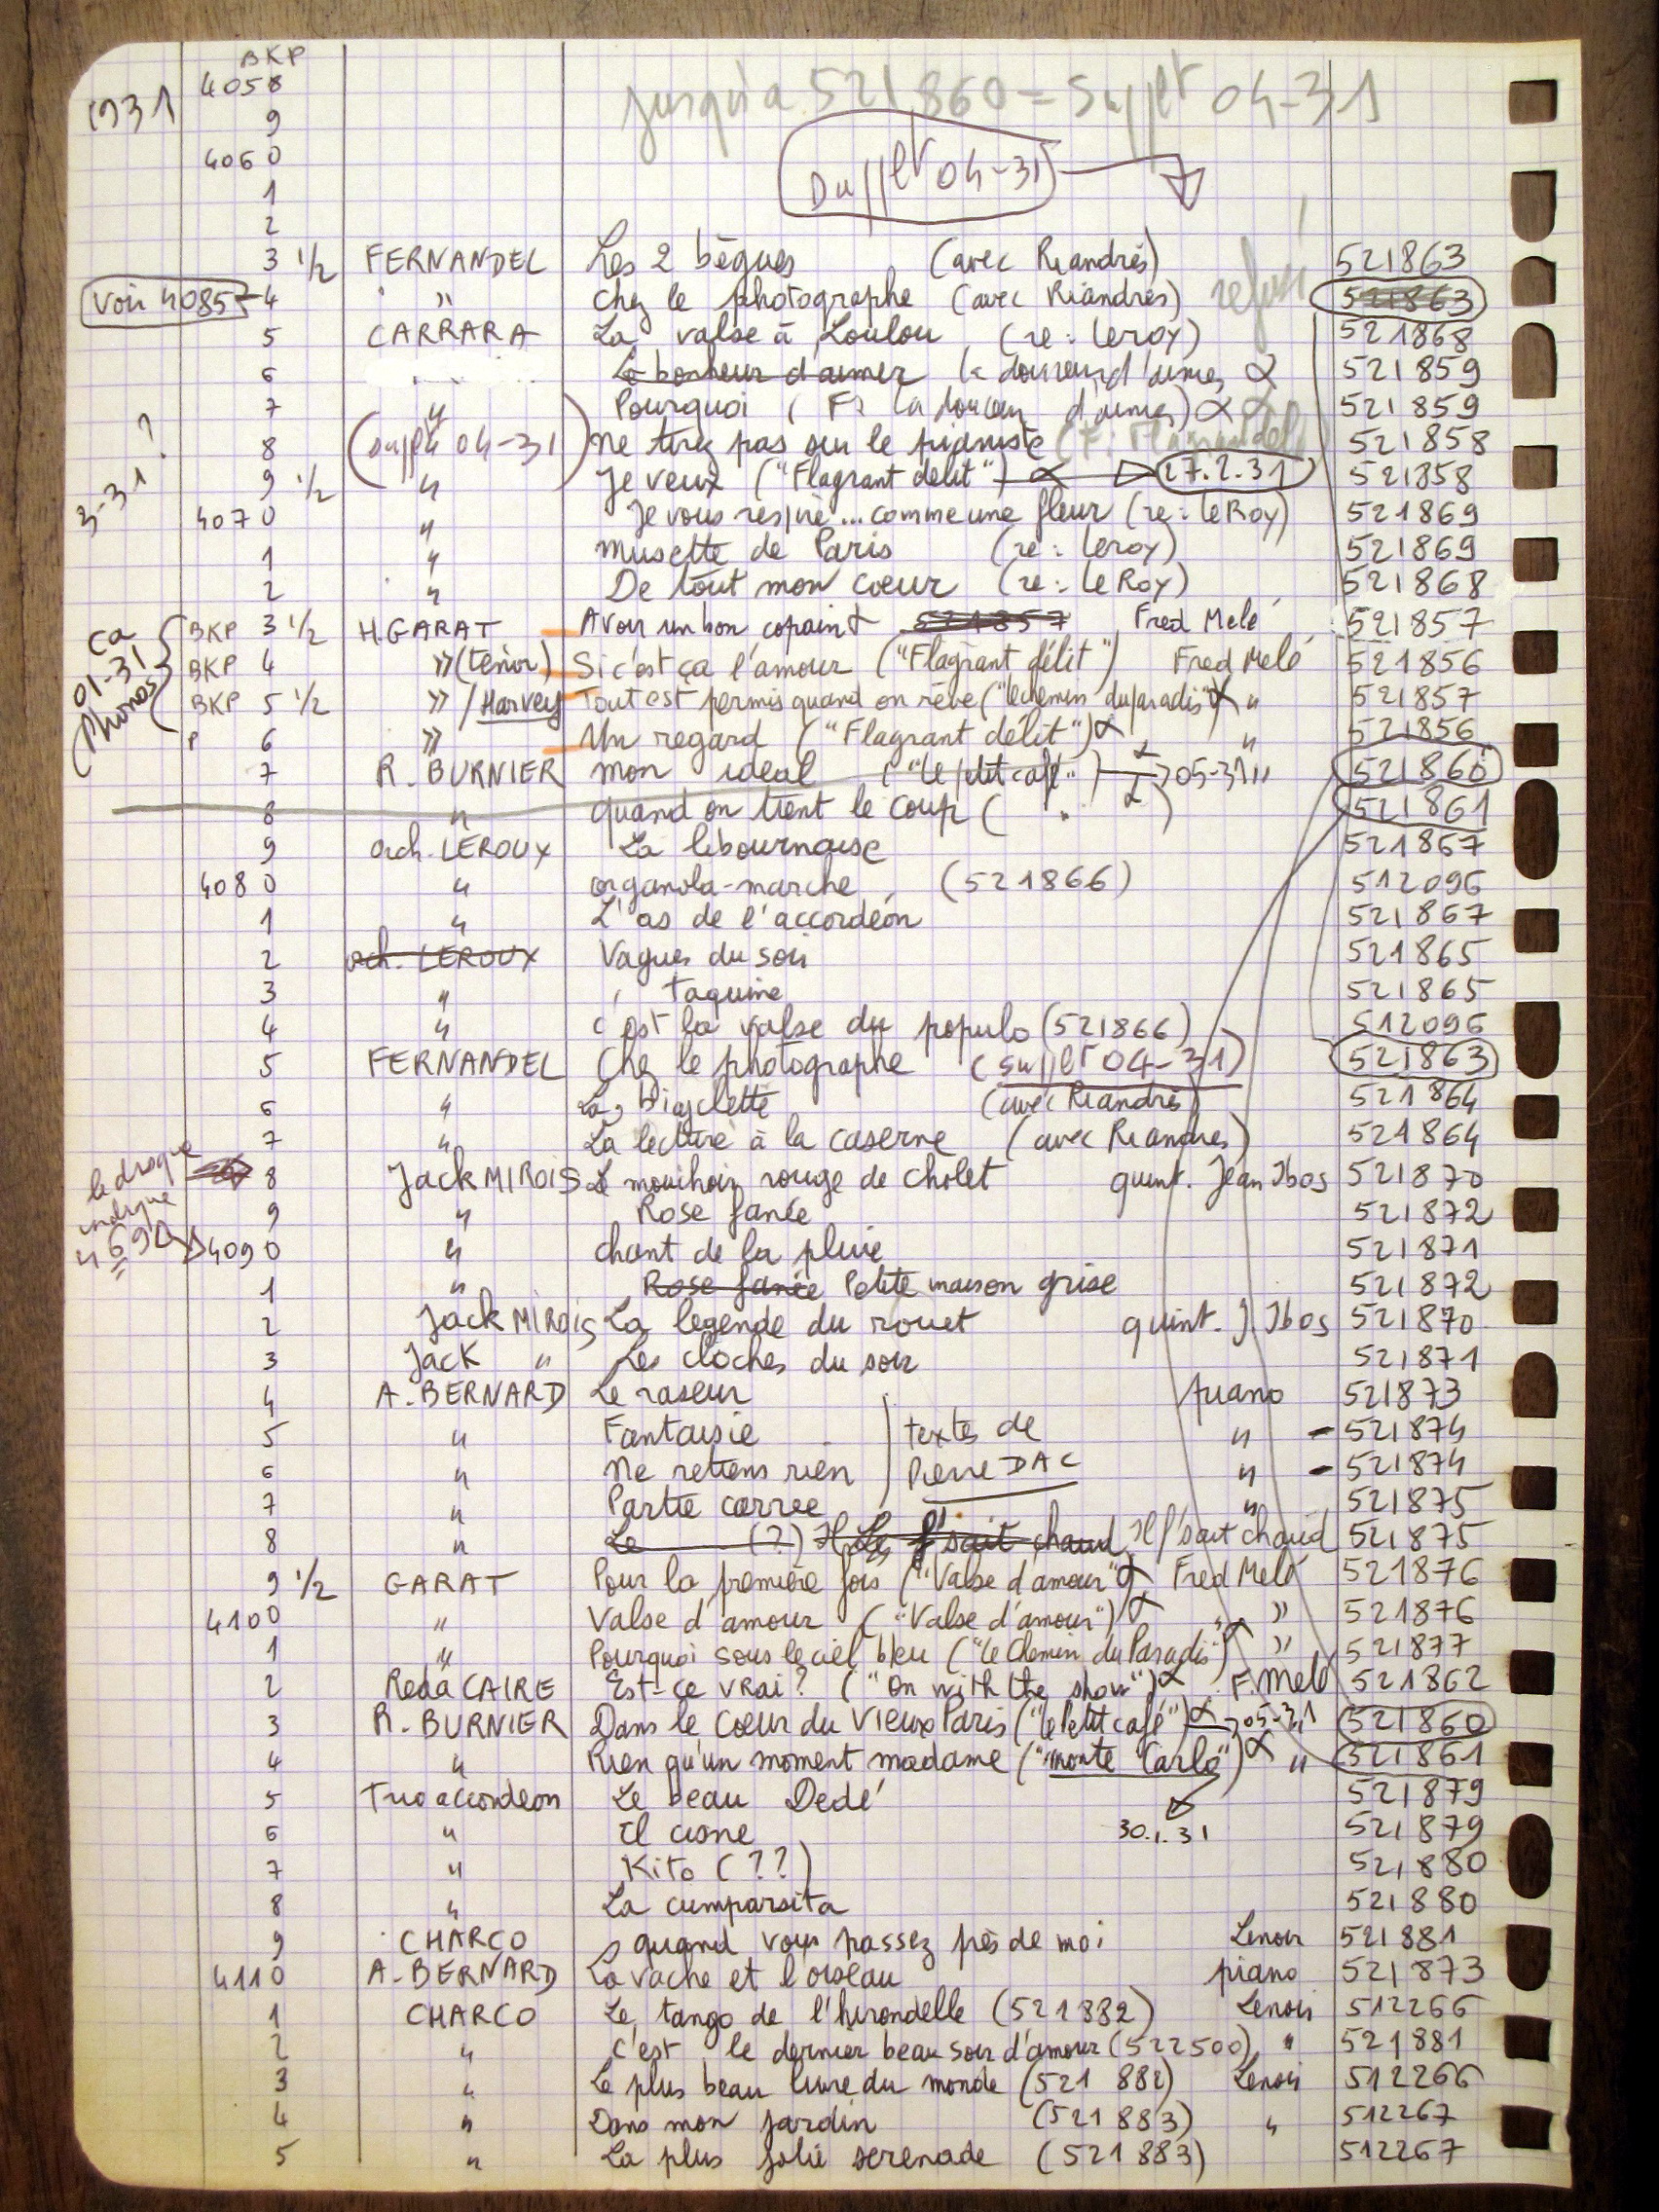 BKP
1931 4058 jusqu'à 521860 = Supplt 04-31
9
4060 Supplt 04-31
1
2
3 1/2 FERNANDEL Les 2 bègues (avec Riandrès) 521863
voir 4085 4 " Chez le photographe (avec Riandrès) refusé 521863
5 CARRARA La valse à Loulou (re: Leroy) 521868
6 Le bonheur d'aimer la douceur d'aimer α 521859
7 " Pourquoi (F: la douceur d'aimer) α 521859
8 (supplt 04-31) Ne tirez pas sur le pianiste (F: Flagrant délit) 521858
3-31? 9 1/2 " Je veux ("Flagrant délit") α 27.2.31 521858
4070 " Je vous respire... comme une fleur (re: Le Roy) 521869
1 " musette de Paris (re: Leroy) 521869
2 " De tout mon coeur (re: Le Roy) 521868
ca 01-31 Phonos
BKP 3 1/2 H.GARAT Avoir un bon copain 521857 Fred Melé 521857
BKP 4 " (tenor) Si c'est ça l'amour ("Flagrant délit") Fred Melé 521856
BKP 5 1/2 " / Harvey Tout est permis quand on rêve ("le chemin du paradis") α " 521857
P 6 " Un regard ("Flagrant délit") α " 521856
7 R. BURNIER mon idéal ("le petit café") α 05-31 " 521860
8 " quand on tient le coup ( " α ) 521861
9 Orch. LEROUX La libournaise 521867
4080 " organola-marche (521866) 512096
1 " L'as de l'accordéon 521867
2 orch. LEROUX Vagues du soir 521865
3 " taquine 521865
4 " c'est la valse du populo (521866) 512096
5 FERNANDEL Chez le photographe (supplt 04-31) 521863
6 " La bicyclette (avec Riandrès) 521864
7 " La lecture à la caserne (avec Riandrès) 521864
8 Jack MIROIS Le mouchoir rouge de Cholet quint. Jean Ibos 521870
le disque indique 4692
9 " Rose fanée 521872
4090 " chant de la pluie 521871
1 " Rose fanée Petite maison grise 521872
2 Jack MIROIS La légende du rouet quint. J. Ibos 521870
3 Jack " Les cloches du soir 521871
4 A. BERNARD Le raseur piano 521873
5 " Fantaisie textes de " - 521874
6 " Ne retiens rien Pierre DAC " - 521874
7 " Partie carrée " 521875
8 " Le (?) Il f'sait chaud Il f'sait chaud 521875
9 1/2 GARAT Pour la première fois ("Valse d'amour") α Fred Melé 521876
4100 " Valse d'amour ("Valse d'amour") α " " 521876
1 " Pourquoi sous le ciel bleu ("le Chemin du Paradis") α " 521877
2 Reda CAIRE Est-ce vrai? ("On with the show") α F. Melé 521862
3 R. BURNIER Dans le coeur du Vieux Paris ("le Petit café") α 05-31 " 521860
4 " Rien qu'un moment madame ("monte Carlo") α " 521861
5 Trio accordeon Le beau Dédé 521879
6 " El cisne 30.1.31 521879
7 " Kito (??) 521880
8 " La cumparsita 521880
9 CHARCO quand vous passez près de moi Lenoir 521881
4110 A. BERNARD La vache et l'oiseau piano 521873
1 CHARCO Le tango de l'hirondelle (521882) Lenoir 512266
2 " c'est le dernier beau soir d'amour (522500) " 521881
3 " Le plus beau livre du monde (521 882) Lenoir 512266
4 " Dans mon jardin (521 883) " 512267
5 " La plus jolie serenade (521 883) 512267